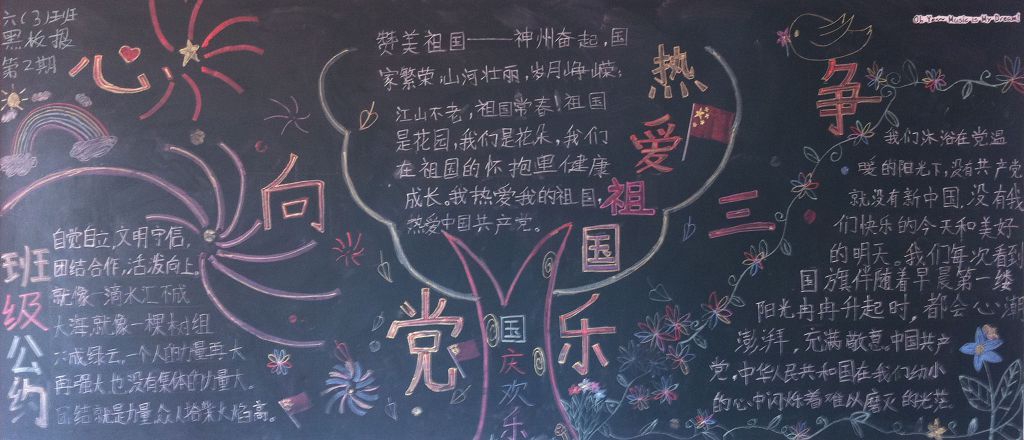 六(3)班
黑板报
第2期
心
向
党
热
爱
祖
国
争
三
乐
赞美祖国——神州奋起,国
家繁荣;山河壮丽,岁月峥嵘;
江山不老,祖国常春!祖国
是花园,我们是花朵,我们
在祖国的怀抱里健康
成长。我热爱我的祖国,
热爱中国共产党。
国
庆
欢
乐
班
级
公
约
自觉自立,文明守信,
团结合作,活泼向上。
就像一滴水汇不成
大海,就像一棵树组
不成绿云。一个人的力量再大
再强大也没有集体的力量大。
团结就是力量,众人拾柴火焰高。
Music is My Dream!
我们沐浴在党温
暖的阳光下,没有共产党
就没有新中国,没有我
们快乐的今天和美好
的明天。我们每次看到
国旗伴随着早晨第一缕
阳光冉冉升起时,都会心潮
澎湃,充满敬意。中国共产
党,中华人民共和国在我们幼小
的心中闪烁着难以磨灭的光茫